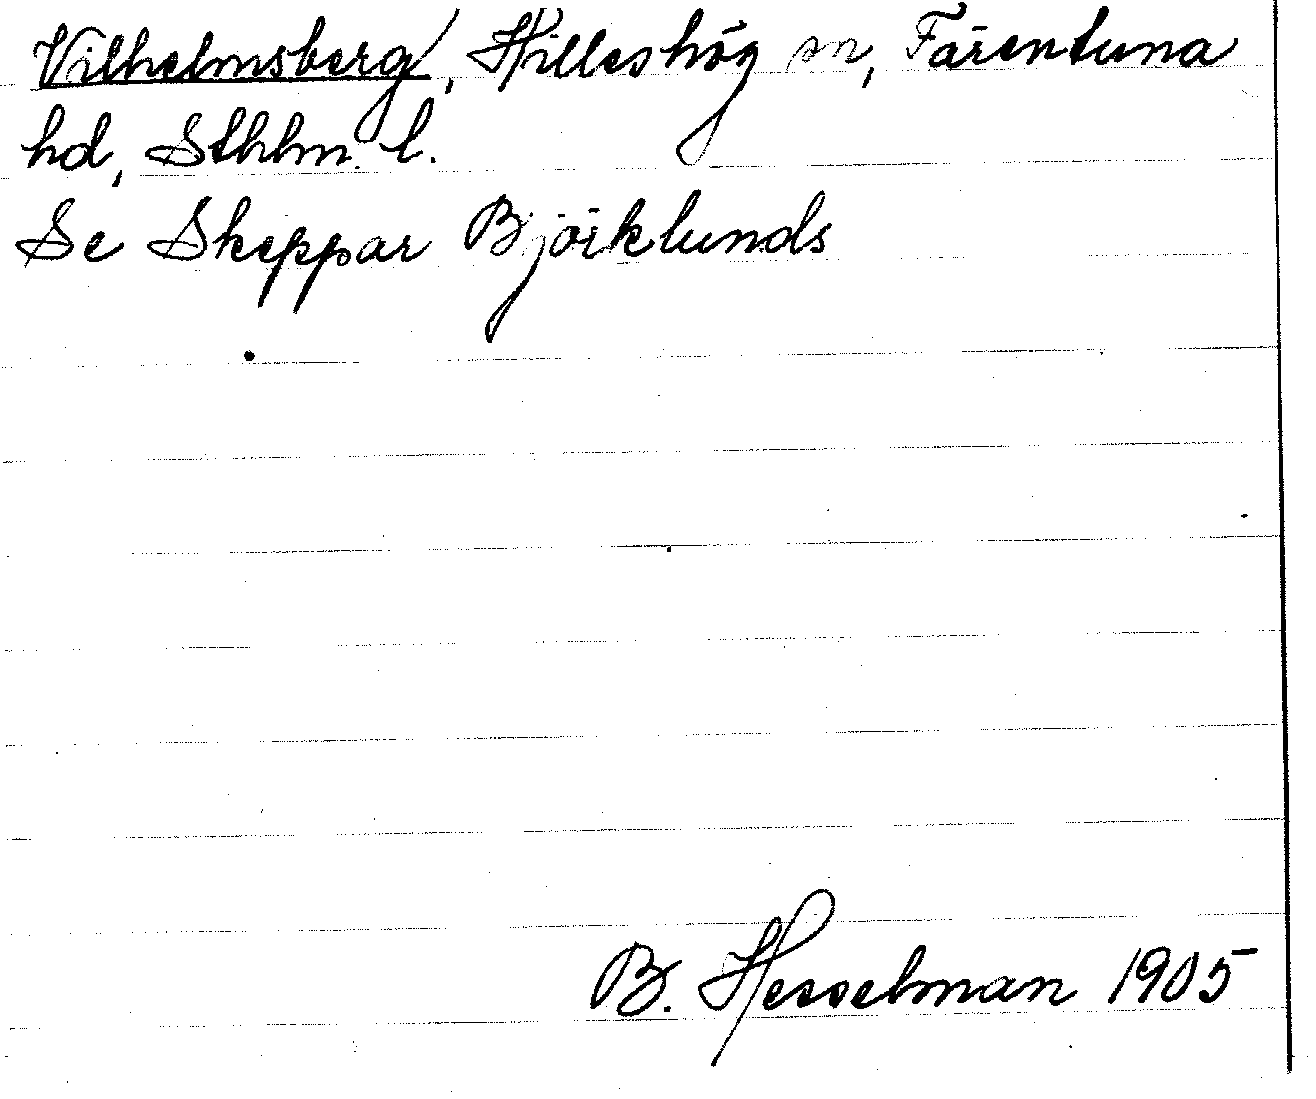 Vilhelmsberg, Hilleshög sn, Färentuna
hd, Sthlm. l.
Se Skeppar Björklunds
B. Hesselman 1905